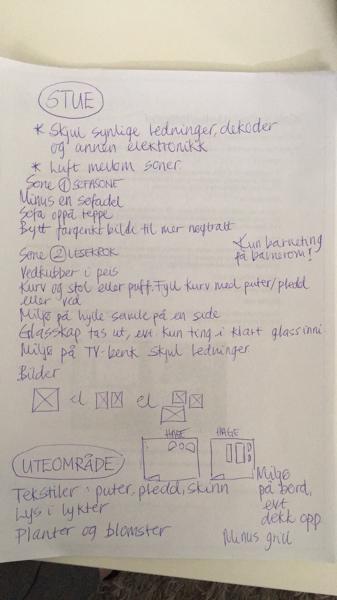 STUE
* Skjul synlige ledninger, dekoder
og annen elektronikk
* Luft mellom soner.
Sone 1 SOFASONE
Minus en sofadel
Sofa oppå teppe
Bytt fargerikt bilde til mer nøytralt
Sone 2 LESEKROK
Kun barneting
på barnerom!
Vedkubber i peis
Kurv og stol eller puff. Fyll kurv med puter/pledd
eller ved
Miljø på hylle samle på en side
Glasskap tas ut, evt kun ting i klart glass inni
Miljø på TV-benk skjul ledninger
Bilder
el el
HAGE HAGE
UTEOMRÅDE
Tekstiler: puter, pledd, skinn
Lys i lykter
Planter og blomster
Miljø
på bord,
evt
dekk opp
Minus grill